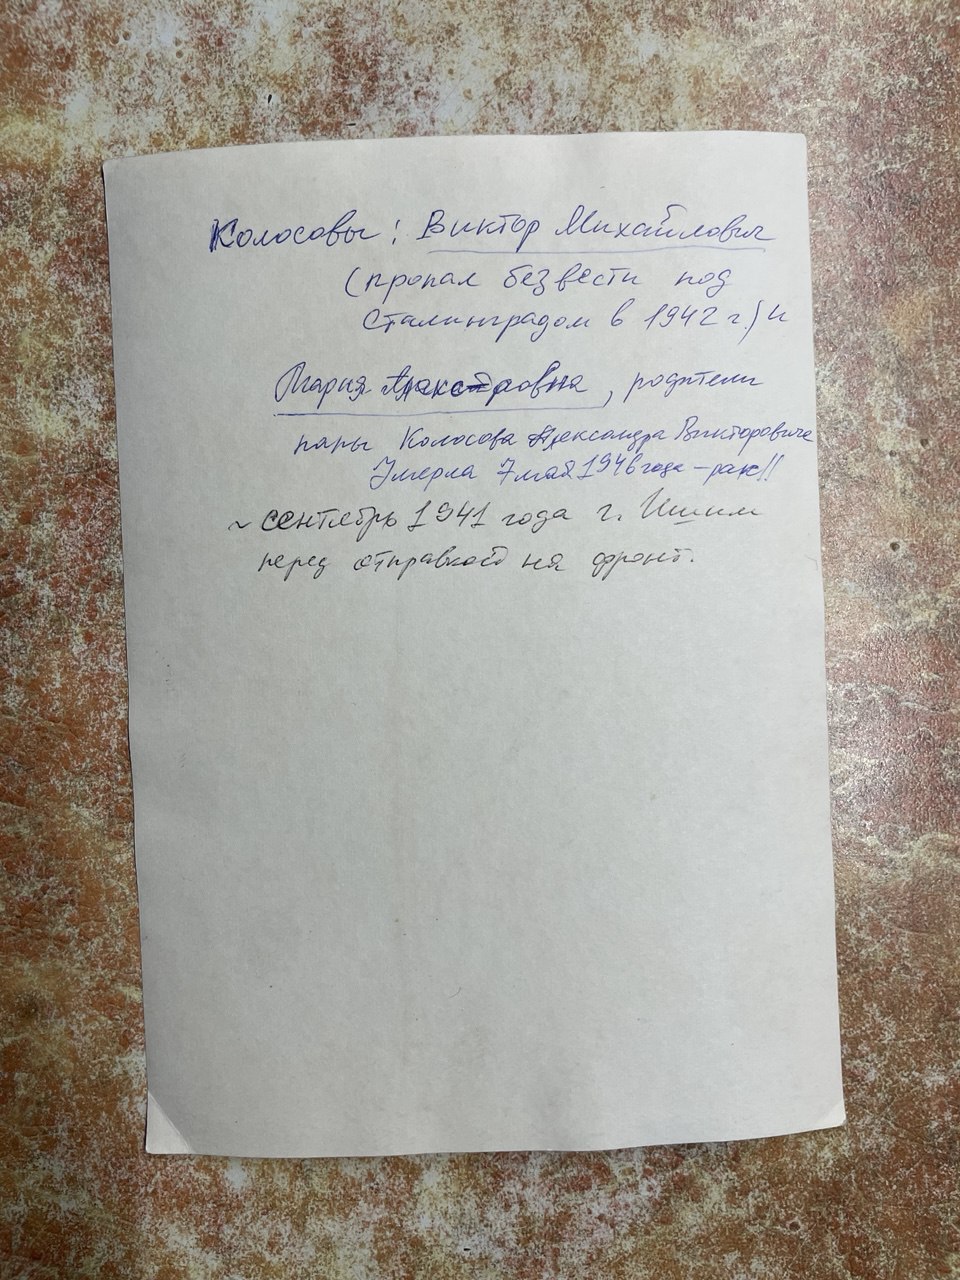 Колосовы: Виктор Михайлович
(пропал без вести под
Сталинградом в 1942 г.) и
Мария , родители
папы Колосова Александра Викторовича
Умерла 7 мая 1946 года – рак!!
~ сентябрь 1941 года г. Ишим
перед отправкой на фронт.